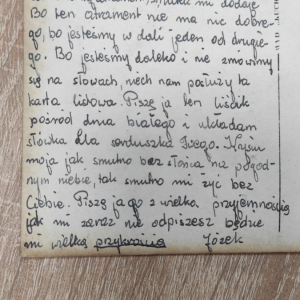 mi dodaje
Bo ten atrament nie ma nic dobre-
go, bo jesteśmy w dali jeden od drugie-
go. Bo jesteśmy daleko i nie zmówimy
się na słowach, niech nam posłuży ta
karta lidowa. Piszę ja ten liścik
pośród dnia białego i układam
słówka dla serduszka Twego. Krysiu
moja jak smutno bez słońca na pogod-
nym niebie, tak smutno mi żyć bez
Ciebie. Piszę ja go z wielką przyjemnością
jak mi zaraz nie odpiszesz będzie
mi wielką przykrością Józek